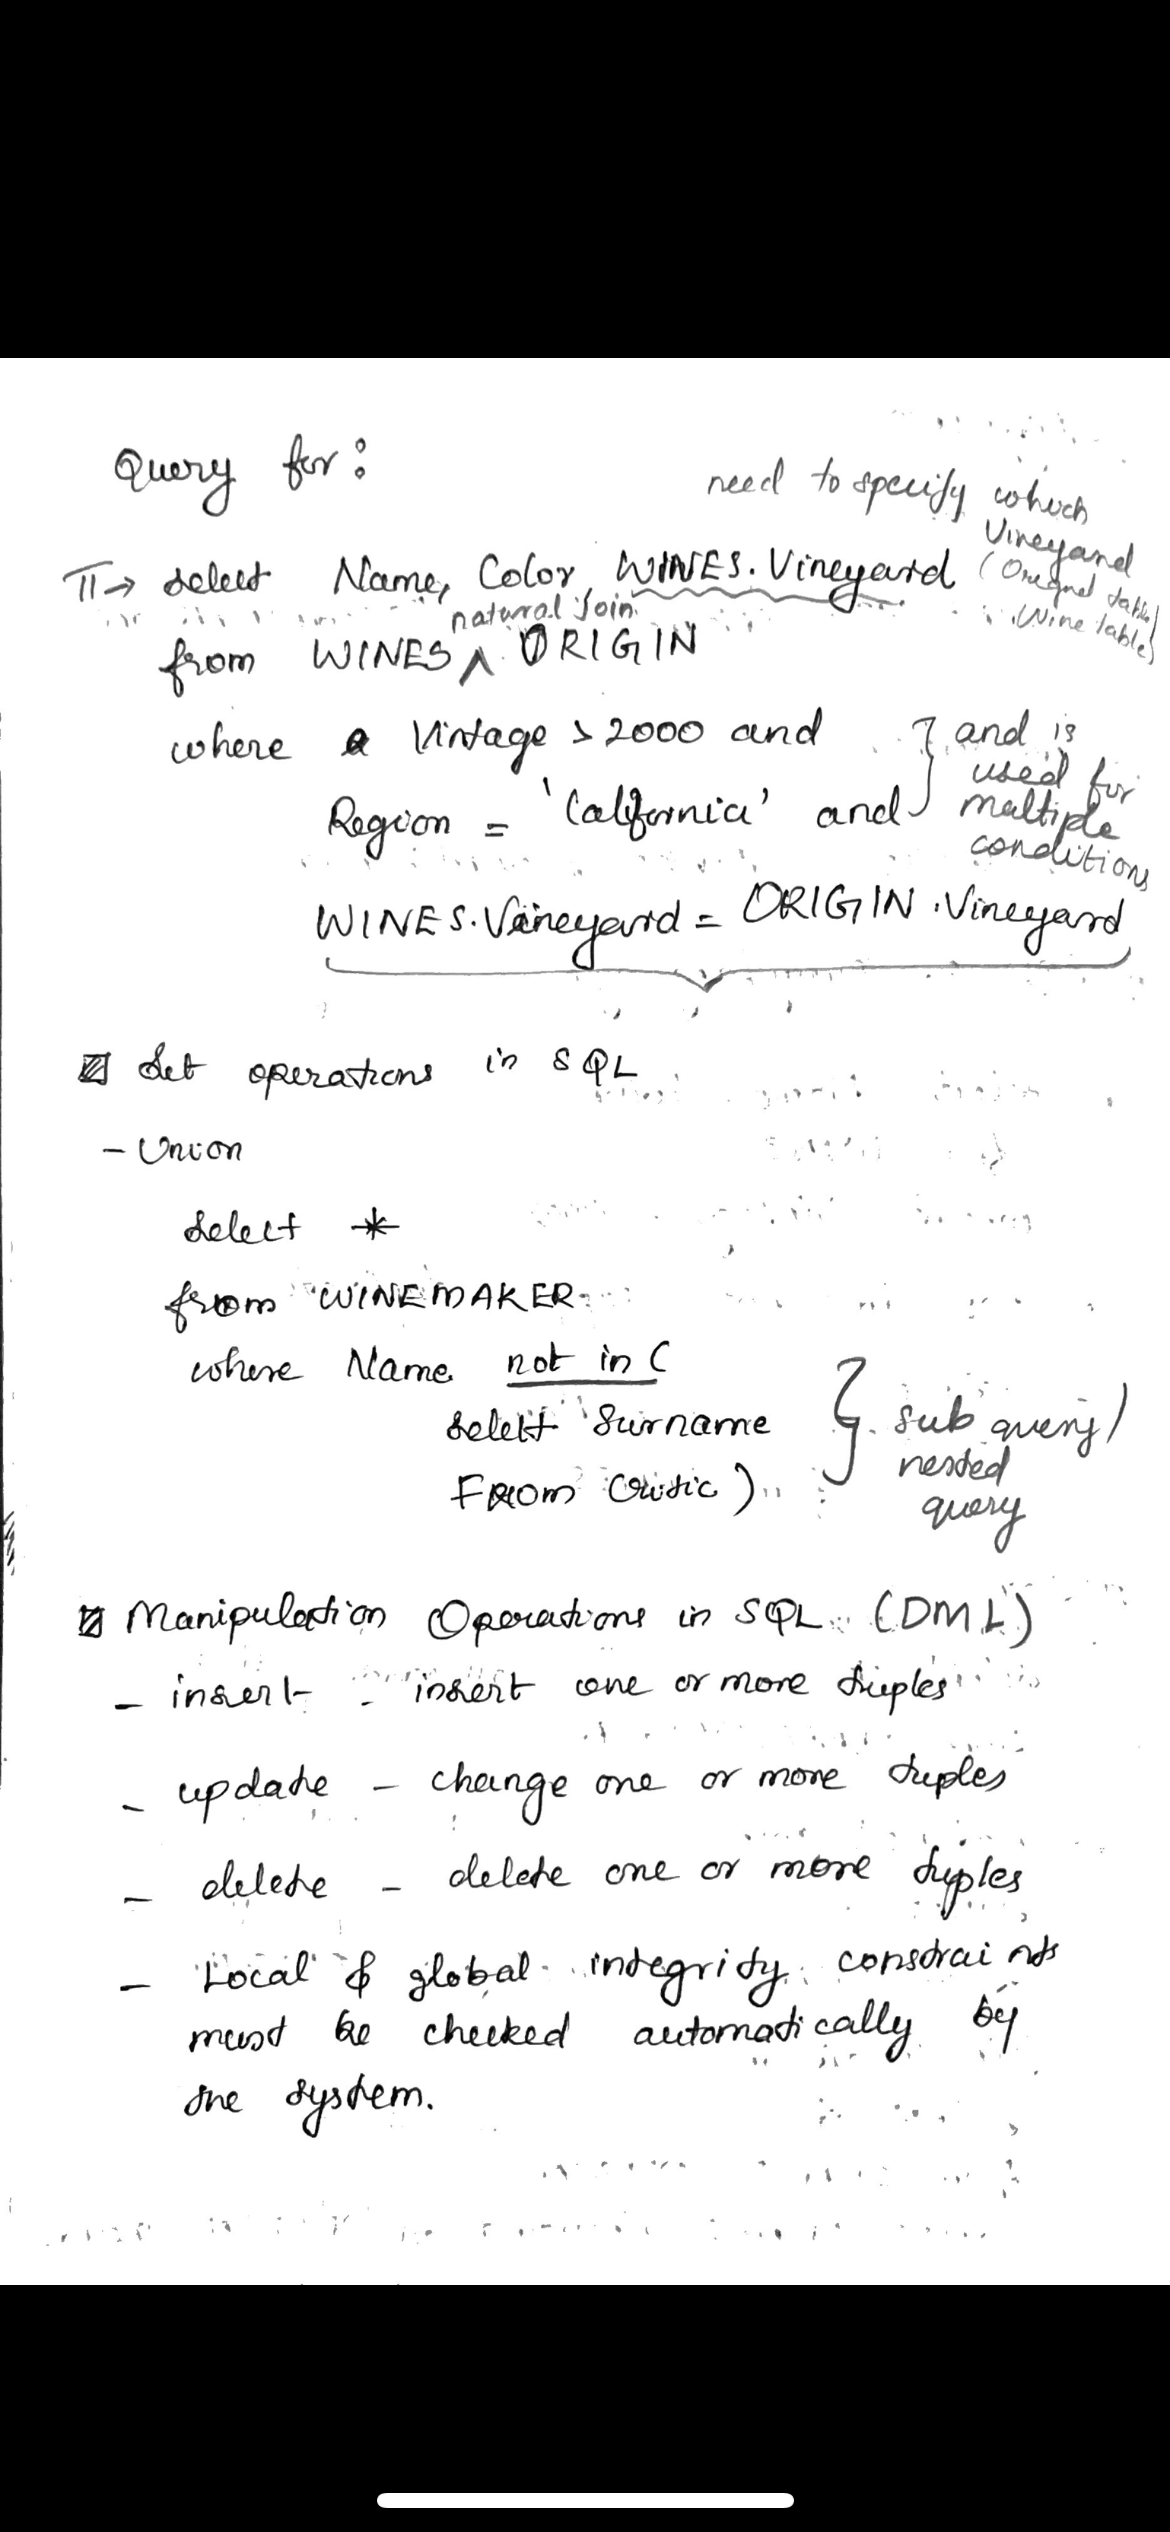 Query for:
need to specify which
Vineyard
(Original table/
Wine table)
π → select Name, Color, WINES.Vineyard
natural join
from WINES ^ ORIGIN
where Vintage > 2000 and
Region = 'California' and
} and is
used for
multiple
conditions
WINES.Vineyard = ORIGIN.Vineyard
Set operations in SQL
- Union
select *
from WINEMAKER
where Name not in (
select Surname
From Critic)
} sub query /
nested
query
Manipulation Operations in SQL (DML)
- insert - insert one or more tuples
- update - change one or more tuples
- delete - delete one or more tuples
- Local & global integrity constraints
must be checked automatically by
the system.